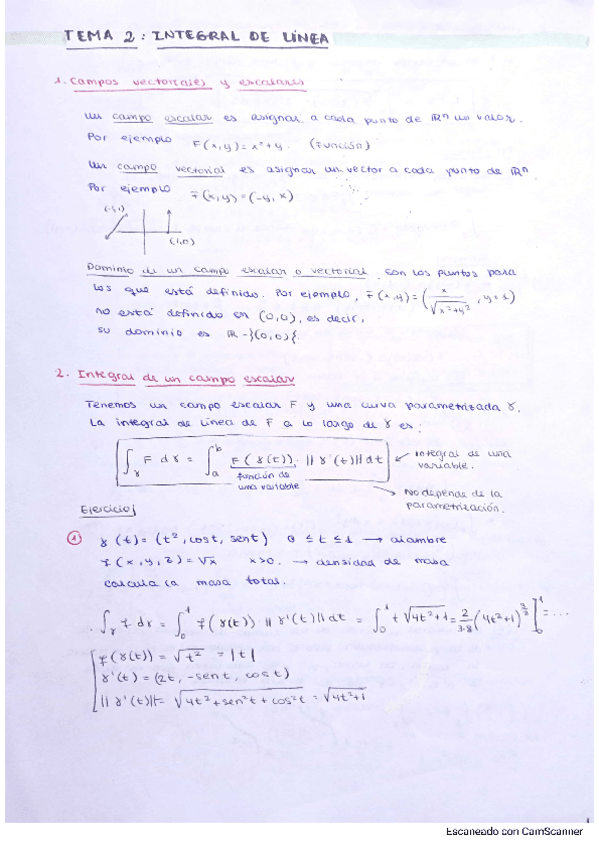 TEMA 2 : INTEGRAL DE LÍNEA
1. Campos vectoriales y escalares
Un campo escalar es asignar a cada punto de ℝⁿ un valor.
Por ejemplo F(x,y) = x²+y. (Función)
Un campo vectorial es asignar un vector a cada punto de ℝⁿ.
Por ejemplo F̄(x,y) = (-y, x)
(-1,1)
(1,0)
Dominio de un campo escalar o vectorial son los puntos para
los que está definido. Por ejemplo, F(x,y) = (x/√(x²+y²), y+1)
no está definido en (0,0), es decir,
su dominio es ℝ-}(0,0){.
2. Integral de un campo escalar
Tenemos un campo escalar F y una curva parametrizada γ.
La integral de línea de F a lo largo de γ es:
∫_γ F dγ = ∫_a^b F(γ(t)). ||γ'(t)|| dt
función de
una variable
integral de una
variable.
No depende de la
parametrización.
Ejercicio
1 γ(t) = (t², cost, sent) 0 ≤ t ≤ 1 → alambre
f(x,y,z) = √x x>0. → densidad de masa
calcula la masa total.
∫_γ f dγ = ∫_0^1 f(γ(t)) ||γ'(t)|| dt = ∫_0^1 t √(4t²+1) = 2/(3·8) (4t²+1)^(3/2) ]_0^1 = ...
f(γ(t)) = √t² = |t|
γ'(t) = (2t, -sent, cost)
||γ'(t)|| = √(4t²+sen²t+cos²t) = √(4t²+1)
Escaneado con CamScanner